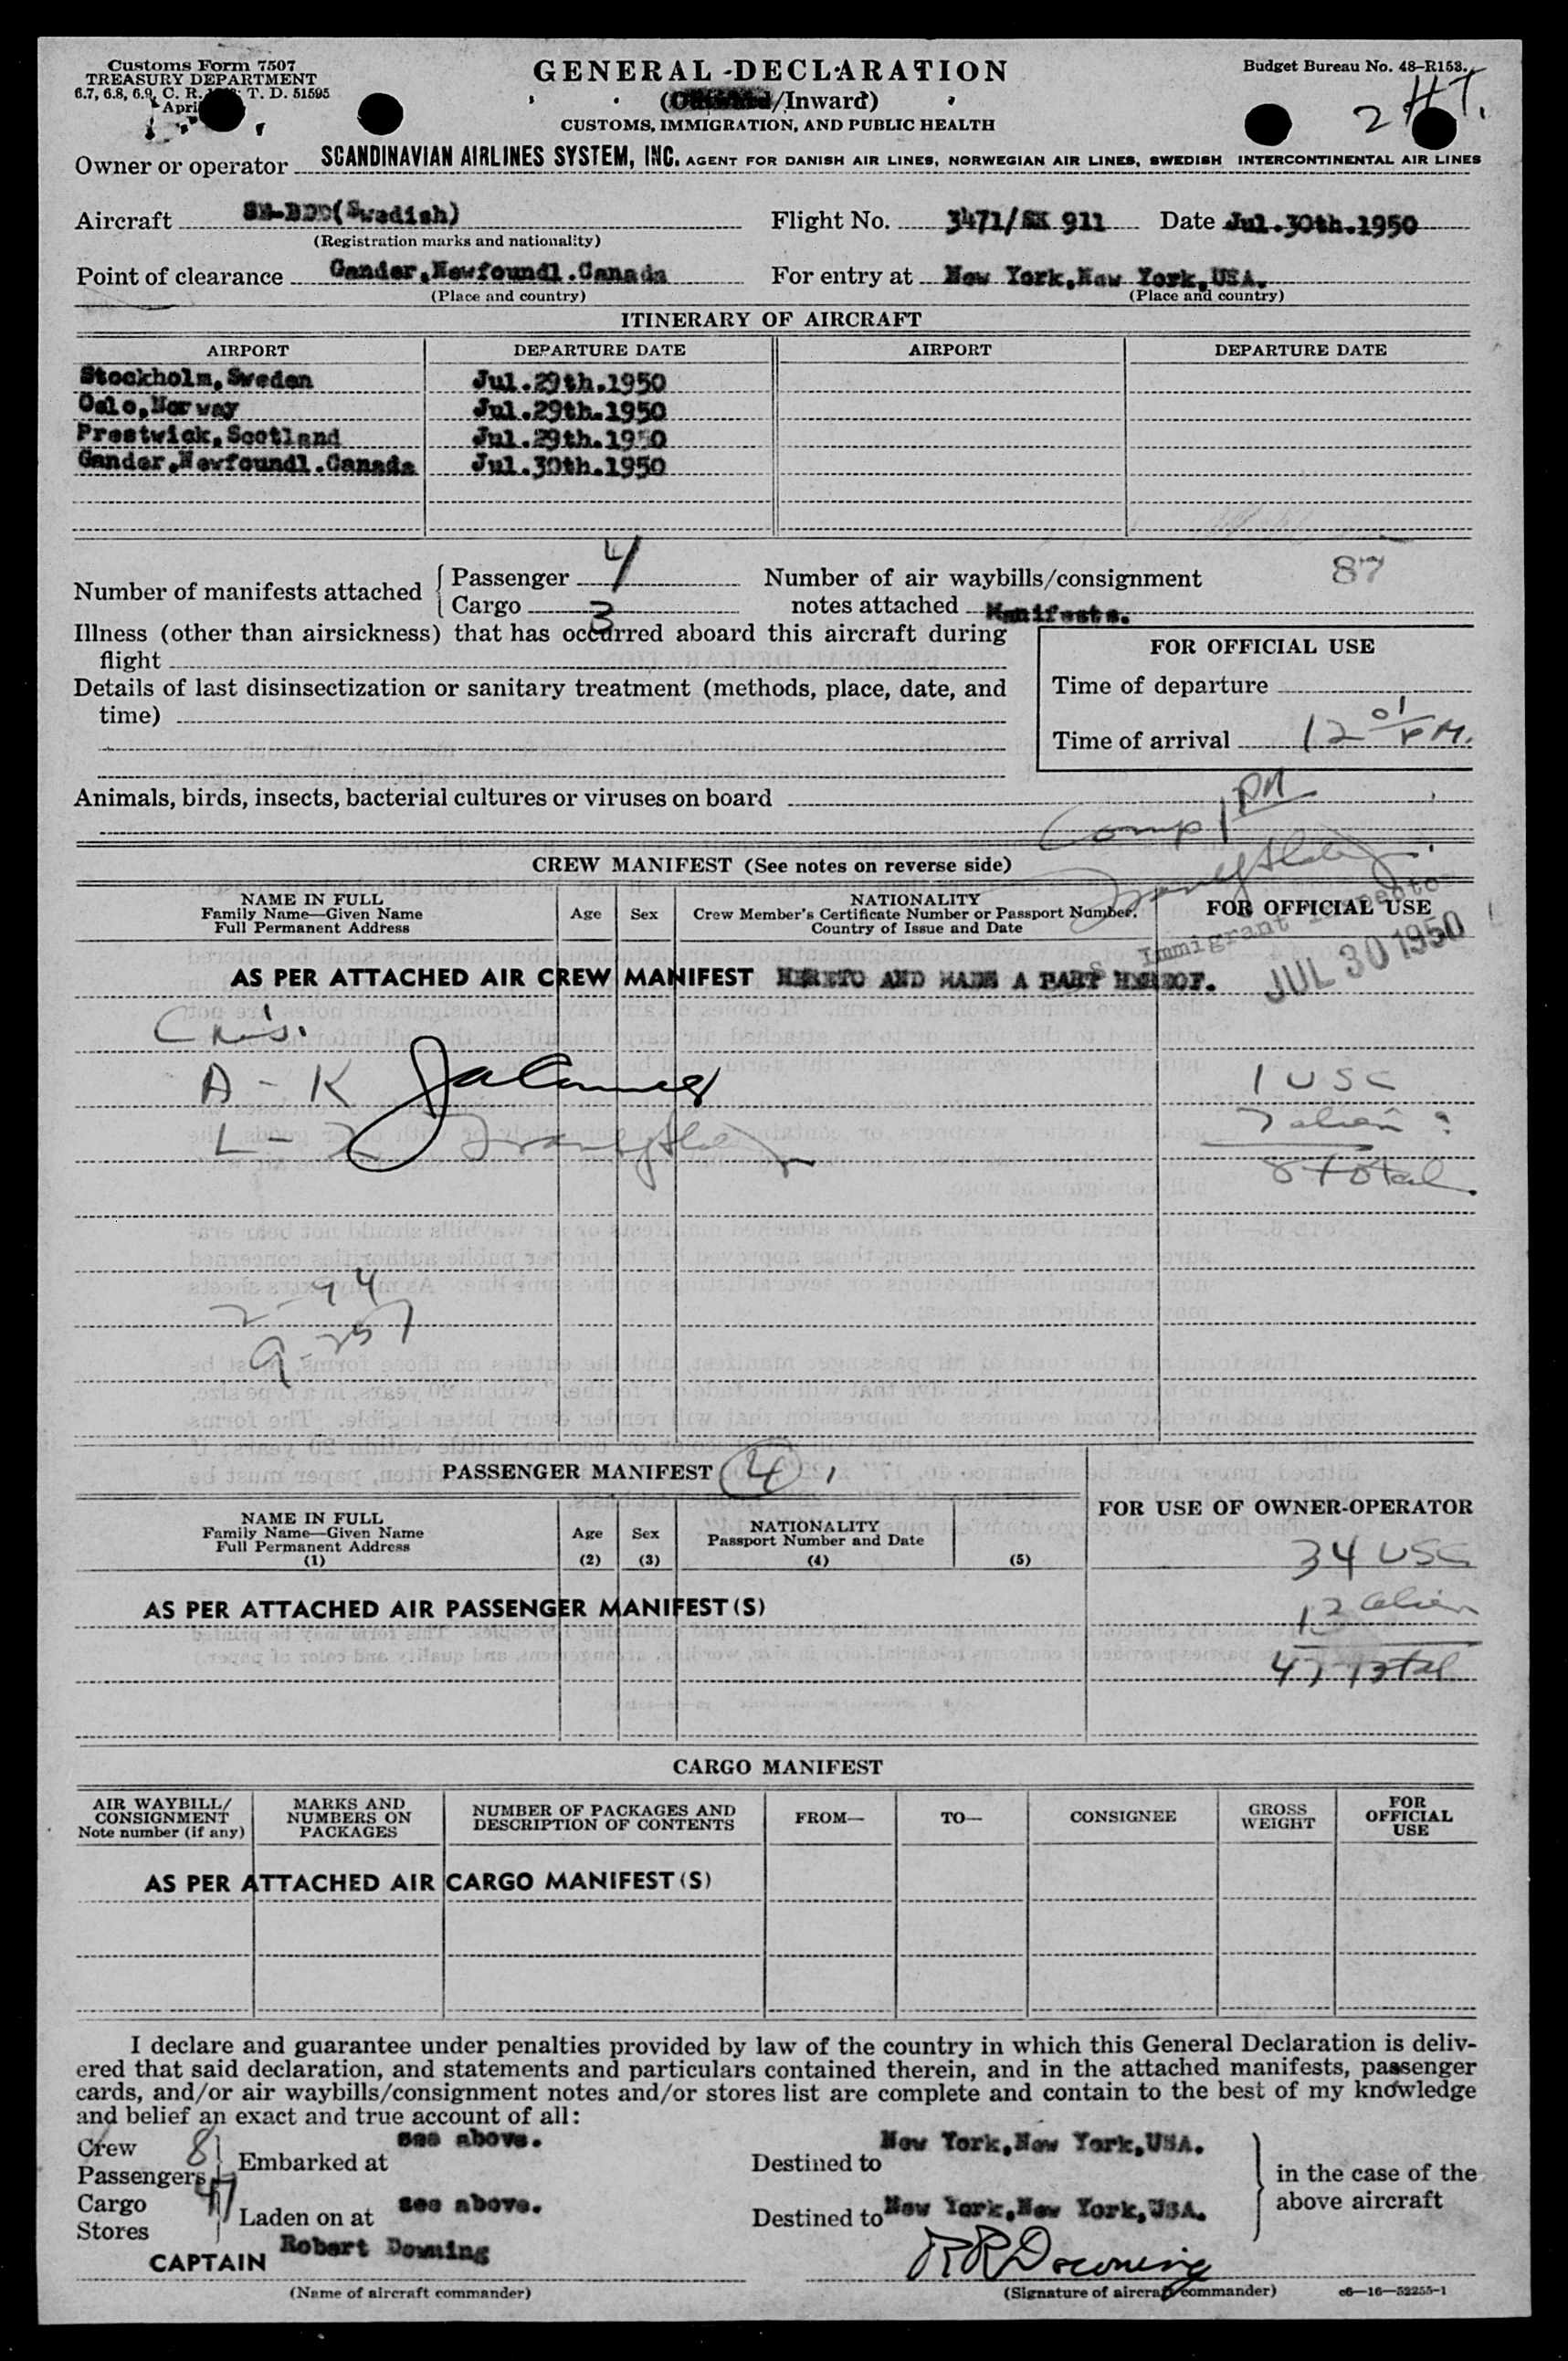 Customs Form 7507
TREASURY DEPARTMENT
6.7, 6.8, 6.9, C. R. T. D. 51595
Apri
GENERAL DECLARATION
(/Inward)
CUSTOMS, IMMIGRATION, AND PUBLIC HEALTH
Budget Bureau No. 48-R153.
Owner or operator SCANDINAVIAN AIRLINES SYSTEM, INC. AGENT FOR DANISH AIR LINES, NORWEGIAN AIR LINES, SWEDISH INTERCONTINENTAL AIR LINES
Aircraft SE-BDD(Swedish) Flight No. 3471/SK 911 Date Jul.30th.1950
(Registration marks and nationality)
Point of clearance Gander,Newfoundl.Canada For entry at New York,New York,USA.
(Place and country) (Place and country)
ITINERARY OF AIRCRAFT
AIRPORT DEPARTURE DATE AIRPORT DEPARTURE DATE
Stockholm,Sweden Jul.29th.1950
Oslo,Norway Jul.29th.1950
Prestwick,Scotland Jul.29th.1950
Gander,Newfoundl.Canada Jul.30th.1950
Number of manifests attached { Passenger 4
Cargo 3
Number of air waybills/consignment 87
notes attached Manifests.
Illness (other than airsickness) that has occurred aboard this aircraft during
flight
Details of last disinsectization or sanitary treatment (methods, place, date, and
time)
FOR OFFICIAL USE
Time of departure
Time of arrival 12 01 PM.
Animals, birds, insects, bacterial cultures or viruses on board
Comp 1 PM
CREW MANIFEST (See notes on reverse side)
NAME IN FULL
Family Name—Given Name
Full Permanent Address
Age
Sex
NATIONALITY
Crew Member's Certificate Number or Passport Number,
Country of Issue and Date
FOR OFFICIAL USE
Immigrant Inspector
JUL 30 1950
AS PER ATTACHED AIR CREW MANIFEST HERETO AND MADE A PART HEREOF.
A - K
1 USC
7 alien
8 total
2-94
9-257
PASSENGER MANIFEST 4
NAME IN FULL
Family Name—Given Name
Full Permanent Address
(1)
Age
(2)
Sex
(3)
NATIONALITY
Passport Number and Date
(4)
(5)
FOR USE OF OWNER-OPERATOR
34 USC
13 alien
47 total
AS PER ATTACHED AIR PASSENGER MANIFEST(S)
CARGO MANIFEST
AIR WAYBILL/
CONSIGNMENT
Note number (if any)
MARKS AND
NUMBERS ON
PACKAGES
NUMBER OF PACKAGES AND
DESCRIPTION OF CONTENTS
FROM—
TO—
CONSIGNEE
GROSS
WEIGHT
FOR
OFFICIAL
USE
AS PER ATTACHED AIR CARGO MANIFEST(S)
I declare and guarantee under penalties provided by law of the country in which this General Declaration is deliv-
ered that said declaration, and statements and particulars contained therein, and in the attached manifests, passenger
cards, and/or air waybills/consignment notes and/or stores list are complete and contain to the best of my knowledge
and belief an exact and true account of all:
Crew 8
Passengers 47
Embarked at see above.
Destined to New York,New York,USA.
Cargo
Stores
Laden on at see above.
Destined to New York,New York,USA.
in the case of the
above aircraft
CAPTAIN Robert Downing
RRDowning
(Name of aircraft commander)
(Signature of aircraft commander)
c6—16—52255-1